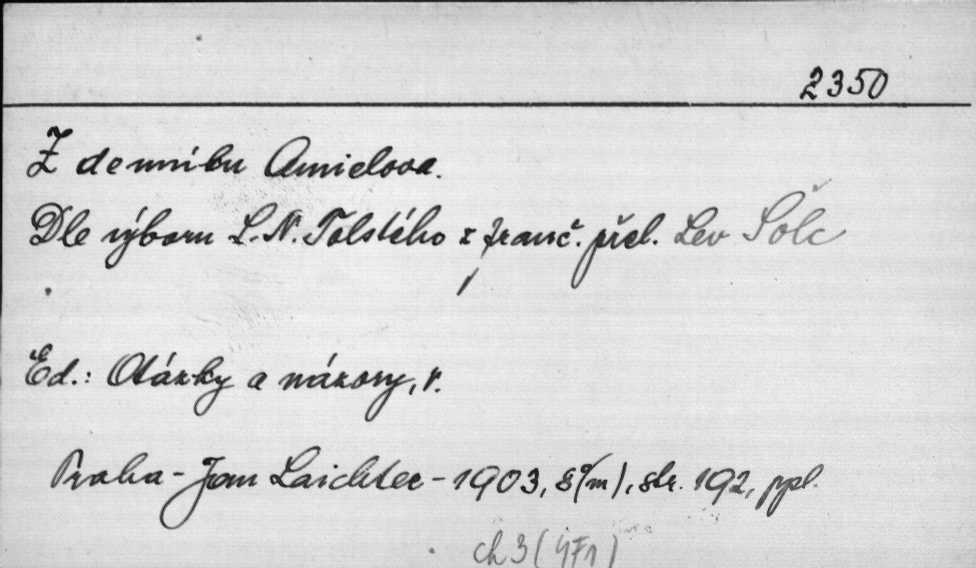 2350
Z denníku Amielova.
Dle výboru L. N. Tolstého z franč. přel. Lev Šolc
Ed.: Otázky a názory, v.
Praha - Jan Laichter - 1903, 8°(m), str. 192, ppl.
ch 3 (4F1)